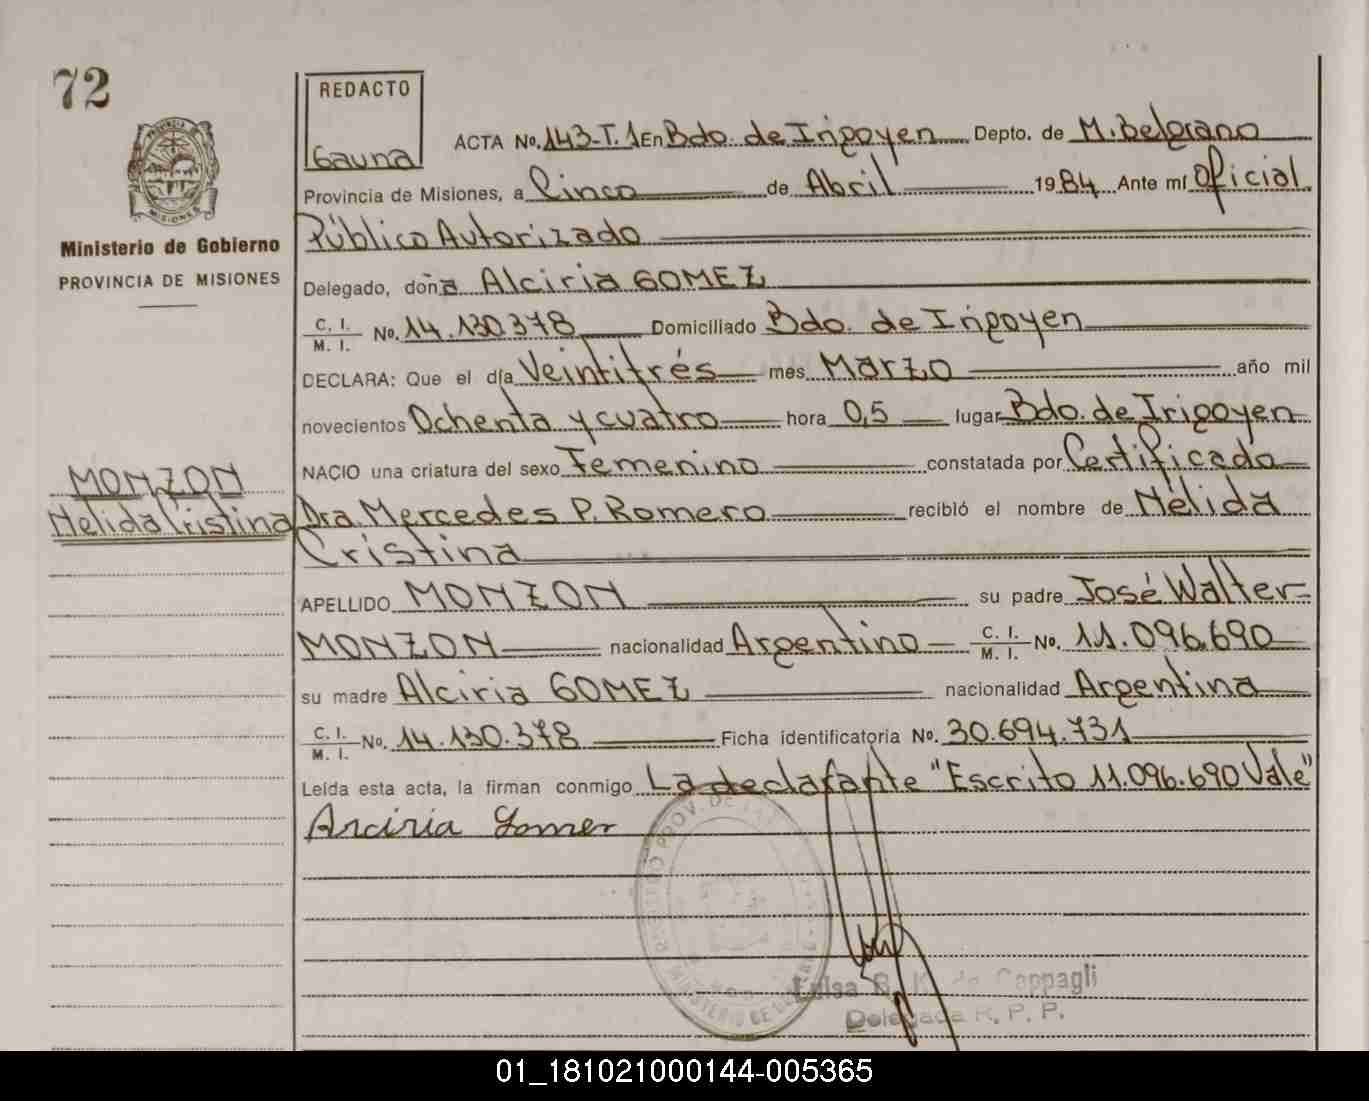 72
REDACTO
Gauna
PROVINCIA DE
MISIONES
Ministerio de Gobierno
PROVINCIA DE MISIONES
ACTA No. 143-T.1 En Bdo. de Irigoyen Depto. de M. Belgrano
Provincia de Misiones, a Cinco de Abril 1984 Ante mí Oficial
Público Autorizado
Delegado, doña Alciria GOMEZ
C. I. M. I. No. 14.130.378 Domiciliado Bdo. de Irigoyen
DECLARA: Que el día Veintitrés mes Marzo año mil
novecientos Ochenta y cuatro hora 0,5 lugar Bdo. de Irigoyen
NACIO una criatura del sexo Femenino constatada por Certificado
MONZON
Nelida Cristina
Dra. Mercedes P. Romero recibió el nombre de Nélida
Cristina
APELLIDO MONZON su padre José Walter
MONZON nacionalidad Argentino C. I. M. I. No. 11.096.690
su madre Alciria GOMEZ nacionalidad Argentina
C. I. M. I. No. 14.130.378 Ficha identificatoria No. 30.694.731
Leída esta acta, la firman conmigo La declarante "Escrito 11.096.690 Vale"
Arciria Gomez
Luisa B. K. de Cappagli
Delegada R. P. P.
01_181021000144-005365